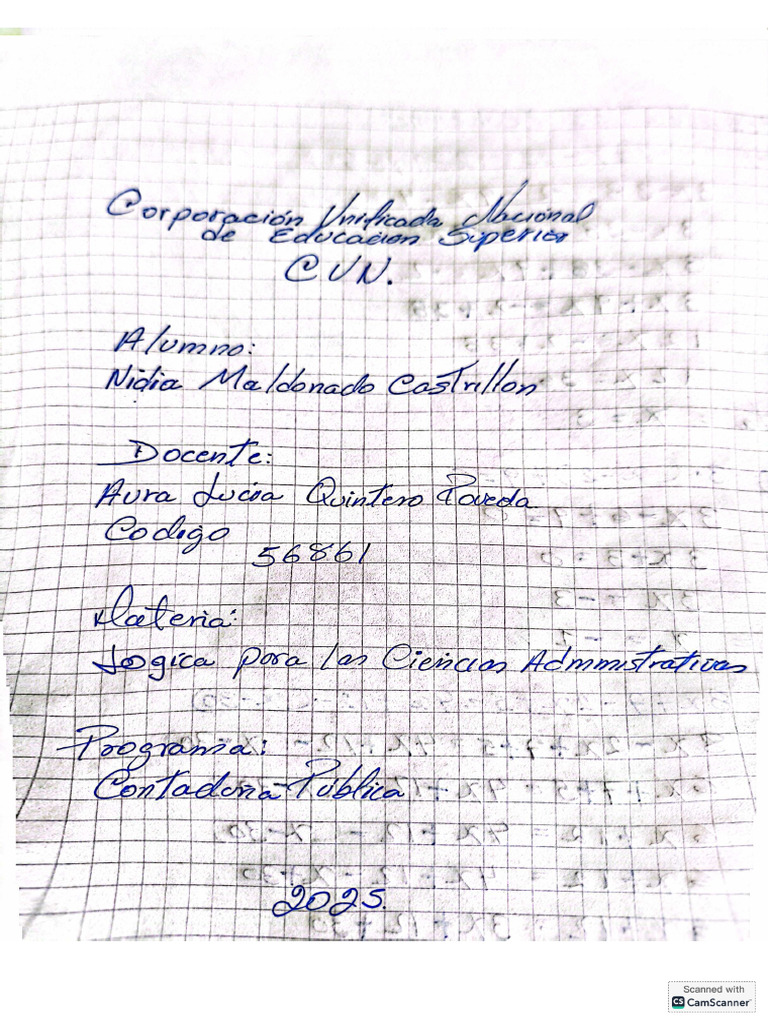 Corporación Unificada Nacional
de Educación Superior
CUN.
Alumno:
Nidia Maldonado Castrillon
Docente:
Aura Lucia Quintero Poveda
Codigo
56861
Materia:
Logica para las Ciencias Administrativas
Programa:
Contaduria Publica
2025.
Scanned with
CS CamScanner